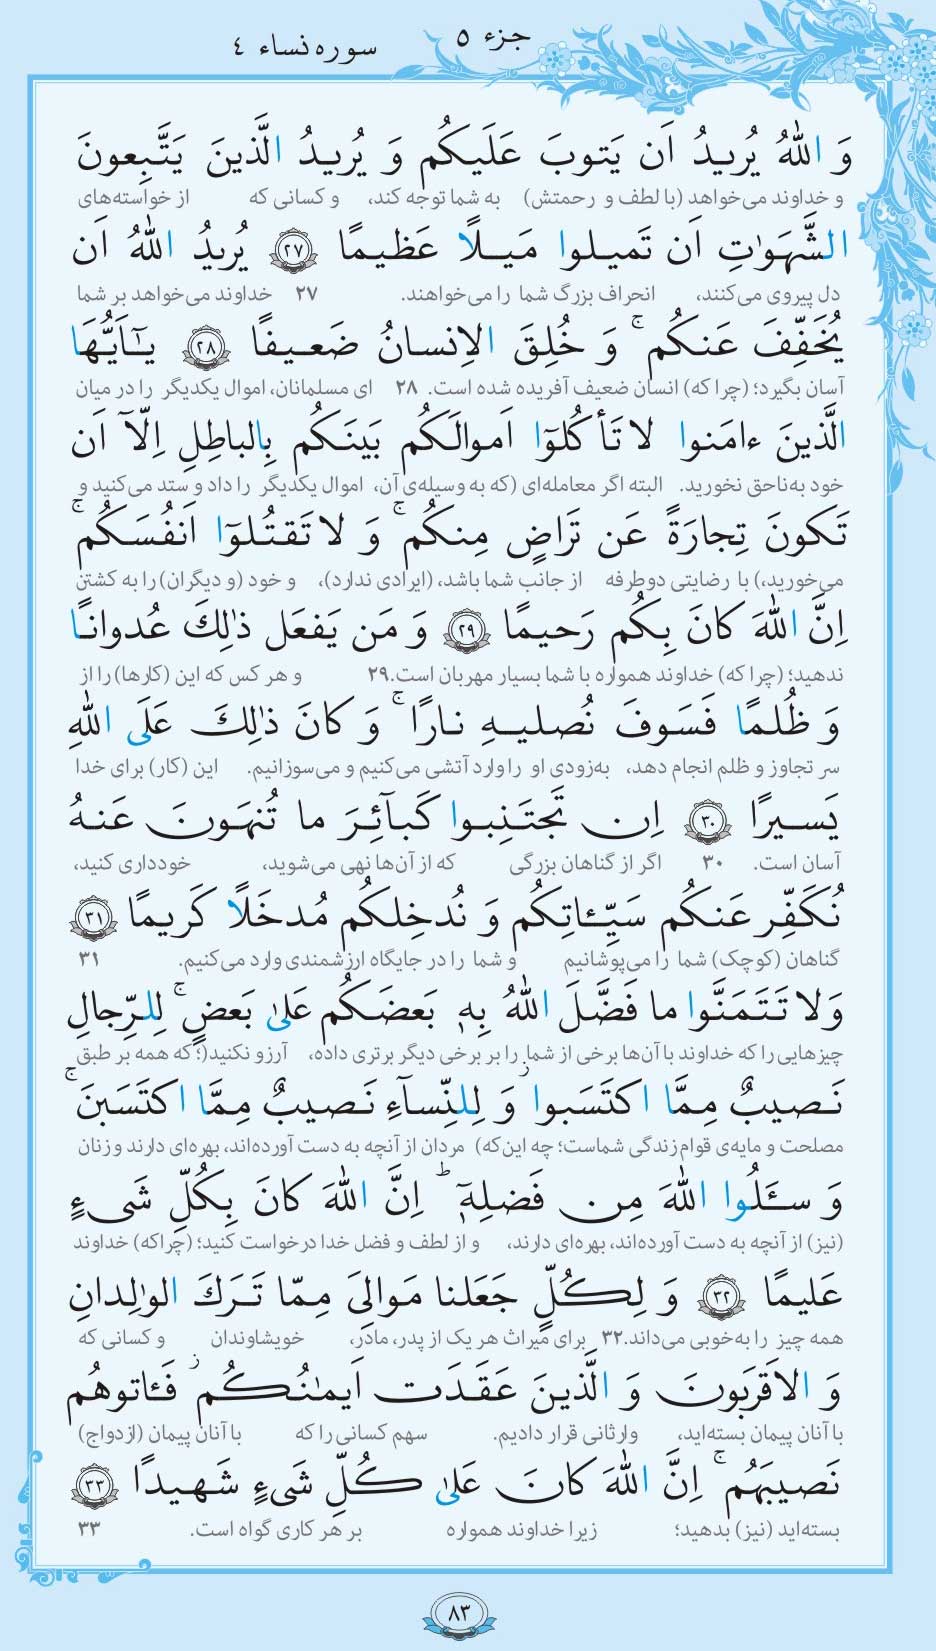 جزء ۵
سوره نساء ۴
وَ اللهُ یُریدُ اَن یَتوبَ عَلَیکُم وَ یُریدُ الَّذینَ یَتَّبِعونَ
و خداوند می‌خواهد (با لطف و رحمتش) به شما توجه کند، و کسانی که از خواسته‌های
الشَّهَوٰتِ اَن تَمیلوا مَیلًا عَظیمًا ﴿۲۷﴾ یُریدُ اللهُ اَن
دل پیروی می‌کنند، انحراف بزرگ شما را می‌خواهند. ۲۷ خداوند می‌خواهد بر شما
یُخَفِّفَ عَنکُم ۚ وَ خُلِقَ الاِنسانُ ضَعیفًا ﴿۲۸﴾ یـٰۤاَیُّهَا
آسان بگیرد؛ (چرا که) انسان ضعیف آفریده شده است. ۲۸ ای مسلمانان، اموال یکدیگر را در میان
الَّذینَ ءامَنوا لا تَأکُلوۤا اَموالَکُم بَینَکُم بِالباطِلِ اِلّاۤ اَن
خود به‌ناحق نخورید. البته اگر معامله‌ای (که به وسیله‌ی آن، اموال یکدیگر را داد و ستد می‌کنید و
تَکونَ تِجارَةً عَن تَراضٍ مِنکُم ۚ وَ لا تَقتُلوۤا اَنفُسَکُم ۚ
می‌خورید،) با رضایتی دوطرفه از جانب شما باشد، (ایرادی ندارد)، و خود (و دیگران) را به کشتن
اِنَّ اللهَ کانَ بِکُم رَحیمًا ﴿۲۹﴾ وَ مَن یَفعَل ذٰلِکَ عُدوانًا
ندهید؛ (چرا که) خداوند همواره با شما بسیار مهربان است. ۲۹ و هر کس که این (کارها) را از
وَ ظُلمًا فَسَوفَ نُصلیهِ نارًا ۚ وَ کانَ ذٰلِکَ عَلَی اللهِ
سر تجاوز و ظلم انجام دهد، به‌زودی او را وارد آتشی می‌کنیم و می‌سوزانیم. این (کار) برای خدا
یَسیرًا ﴿۳۰﴾ اِن تَجتَنِبوا کَبآئِرَ ما تُنهَونَ عَنهُ
آسان است. ۳۰ اگر از گناهان بزرگی که از آن‌ها نهی می‌شوید، خودداری کنید،
نُکَفِّر عَنکُم سَیِّـٔاتِکُم وَ نُدخِلکُم مُدخَلًا کَریمًا ﴿۳۱﴾
گناهان (کوچک) شما را می‌پوشانیم و شما را در جایگاه ارزشمندی وارد می‌کنیم. ۳۱
وَلا تَتَمَنَّوا ما فَضَّلَ اللهُ بِهٖ بَعضَکُم عَلیٰ بَعضٍ ۚ لِلرِّجالِ
چیزهایی را که خداوند با آن‌ها برخی از شما را بر برخی دیگر برتری داده، آرزو نکنید(؛ که همه بر طبق
نَصیبٌ مِمَّا اکتَسَبوا ۖ وَ لِلنِّسآءِ نَصیبٌ مِمَّا اکتَسَبنَ ۚ
مصلحت و مایه‌ی قوام زندگی شماست؛ چه این‌که) مردان از آنچه به دست آورده‌اند، بهره‌ای دارند و زنان
وَ سـَٔلُوا اللهَ مِن فَضلِهٖۤ ؕ اِنَّ اللهَ کانَ بِکُلِّ شَیءٍ
(نیز) از آنچه به دست آورده‌اند، بهره‌ای دارند، و از لطف و فضل خدا درخواست کنید؛ (چراکه) خداوند
عَلیمًا ﴿۳۲﴾ وَ لِکُلٍّ جَعَلنا مَوالِیَ مِمّا تَرَکَ الوٰلِدانِ
همه چیز را به‌خوبی می‌داند. ۳۲ برای میراث هر یک از پدر، مادر، خویشاوندان و کسانی که
وَ الاَقرَبونَ وَ الَّذینَ عَقَدَت اَیمٰنُکُم فَـٔاتوهُم
با آنان پیمان بسته‌اید، وارثانی قرار دادیم. سهم کسانی را که با آنان پیمان (ازدواج)
نَصیبَهُم ۚ اِنَّ اللهَ کانَ عَلیٰ کُلِّ شَیءٍ شَهیدًا ﴿۳۳﴾
بسته‌اید (نیز) بدهید؛ زیرا خداوند همواره بر هر کاری گواه است. ۳۳
۸۳